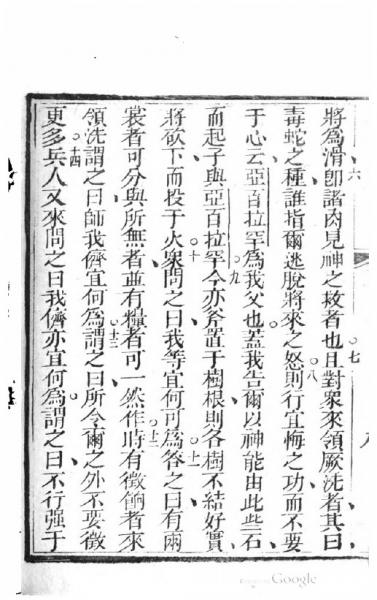 將爲滑卽諸肉見神之救者也且對衆來領厥洗者其曰
毒蛇之種誰指爾逃脫將來之怒則行宜悔之功而不要
于心云亞百拉罕爲我父也蓋我告爾以神能由此些石
而起子與亞百拉罕今亦斧置于樹根則各樹不結好實
將砍下而投于火衆問之曰我等宜何可爲答之曰有兩
裳者可分與所無者並有糧者可一然作時有徵餉者來
領洗謂之曰師我儕宜何爲謂之曰所令爾之外不要徵
更多兵人又來問之曰我儕亦宜何爲謂之曰不行强于
六
七
八
九
十
十一
十二
十三
十四
Google